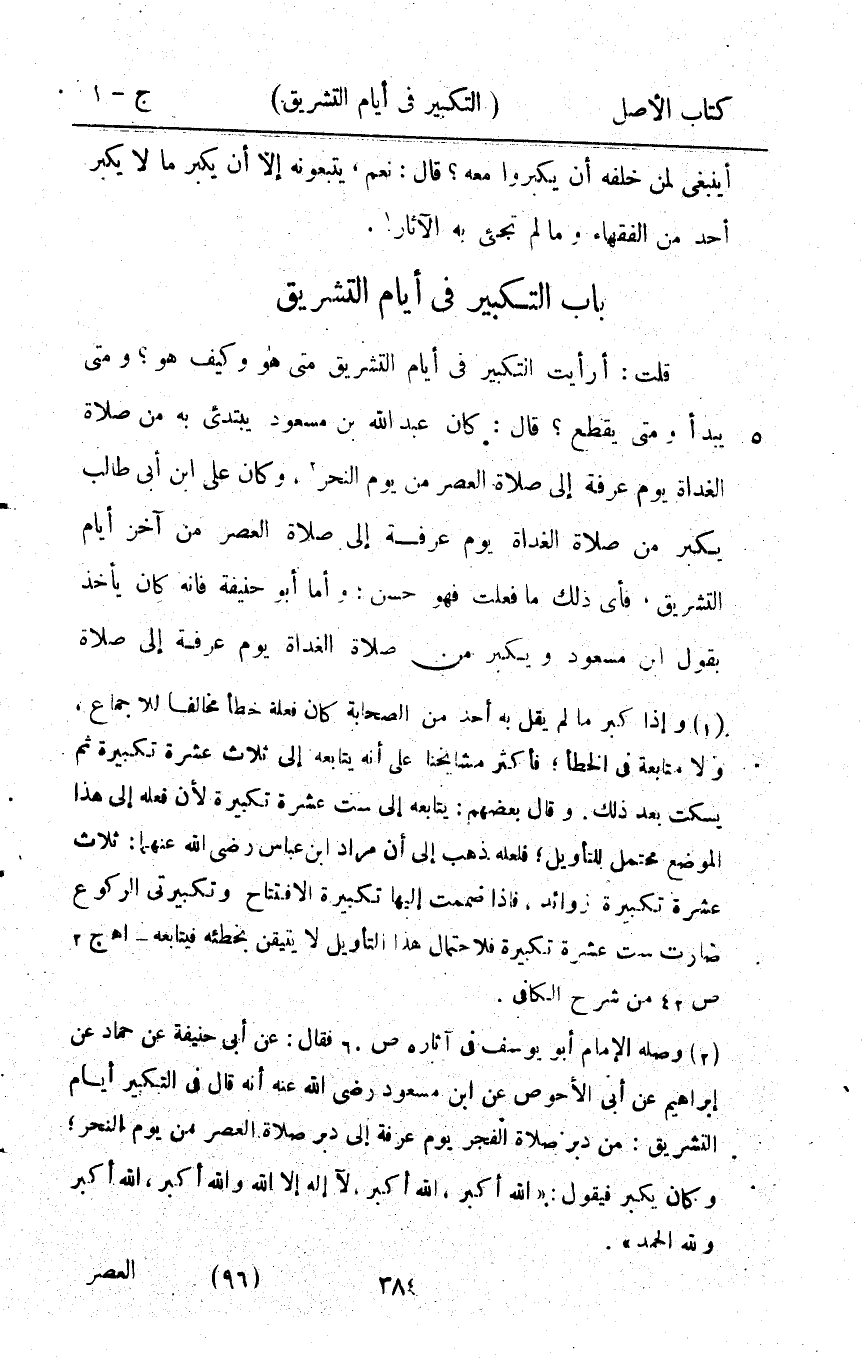 كتاب الأصل ( التكبير فى أيام التشريق ) ج - ١
أينبغى لمن خلفه أن يكبروا معه ؟ قال : نعم ، يتبعونه إلا أن يكبر ما لا يكبر
أحد من الفقهاء و ما لم تجئ به الآثار١ .
باب التكبير فى أيام التشريق
قلت : أرأيت التكبير فى أيام التشريق متى هو و كيف هو ؟ و متى
٥ يبدأ و متى يقطع ؟ قال : كان عبد الله بن مسعود يبتدئ به من صلاة
الغداة يوم عرفة إلى صلاة العصر من يوم النحر٢ ، و كان على ابن أبى طالب
يكبر من صلاة الغداة يوم عرفة إلى صلاة العصر من آخر أيام
التشريق ، فأى ذلك ما فعلت فهو حسن ؛ و أما أبو حنيفة فانه كان يأخذ
بقول ابن مسعود و يكبر من صلاة الغداة يوم عرفة إلى صلاة
(١) و إذا كبر ما لم يقل به أحد من الصحابة كان فعلة خطأ مخالفا للاجماع ،
و لا متابعة فى الخطأ ؛ فأكثر مشايخنا على أنه يتابعه إلى ثلاث عشرة تكبيرة ثم
يسكت بعد ذلك . و قال بعضهم : يتابعه إلى ست عشرة تكبيرة لأن فعله إلى هذا
الموضع محتمل للتأويل ؛ فلعله ذهب إلى أن مراد ابن عباس رضى الله عنهما : ثلاث
عشرة تكبيرة زوائد ، فاذا ضممت إليها تكبيرة الافتتاح و تكبيرتى الركوع
صارت ست عشرة تكبيرة فلاحتمال هذا التأويل لا يتيقن بخطئه فيتابعه - اهـ ج ٢
ص ٤٢ من شرح الكافى .
(٢) وصله الإمام أبو يوسف فى آثاره ص ٦٠ فقال : عن أبى حنيفة عن حماد عن
إبراهيم عن أبى الأحوص عن ابن مسعود رضى الله عنه أنه قال فى التكبير أيام
التشريق : من دبر صلاة الفجر يوم عرفة إلى دبر صلاة العصر من يوم النحر ؛
و كان يكبر فيقول : « الله أكبر ، الله أكبر ، لآ إله إلا الله والله أكبر ، الله أكبر
ولله الحمد » .
٣٨٤ (٩٦) العصر